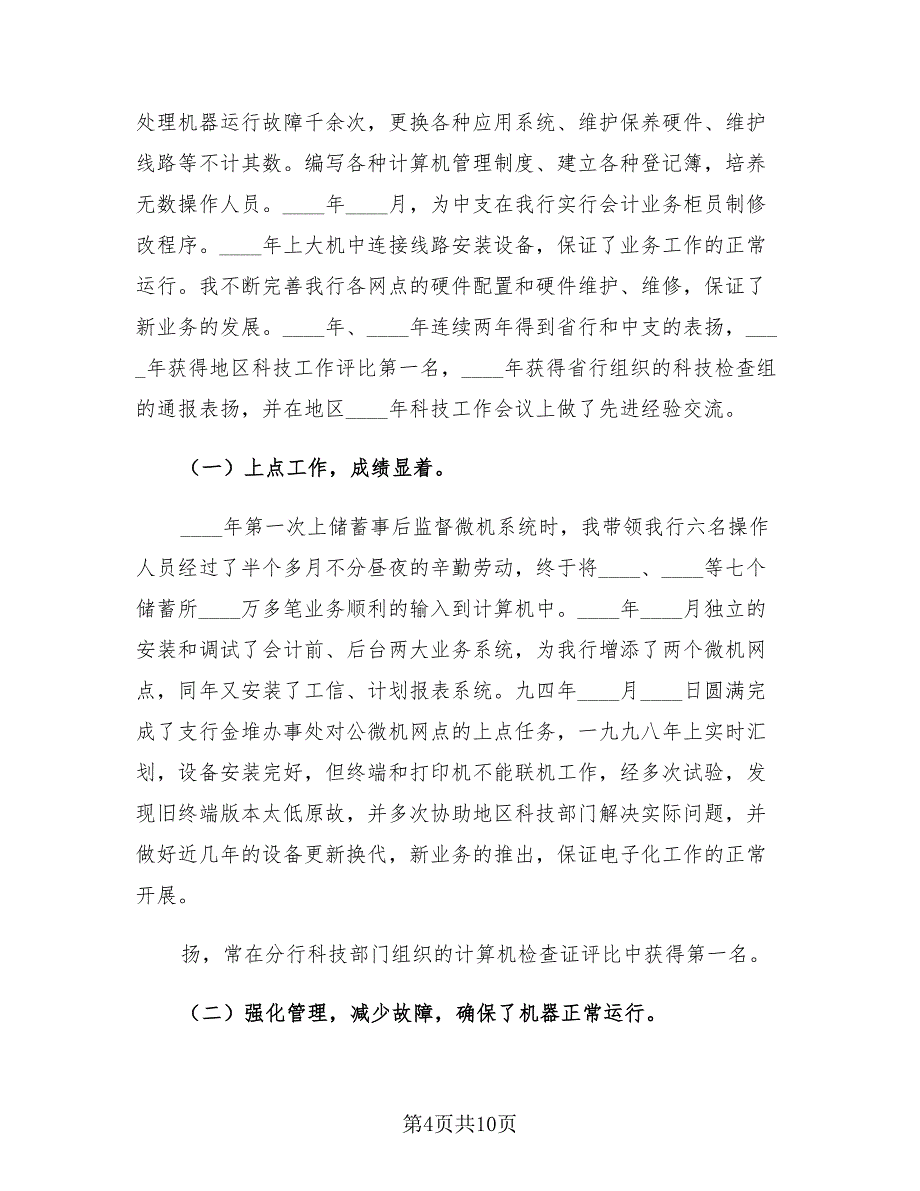 处理机器运行故障千余次，更换各种应用系统、维护保养硬件、维护
线路等不计其数。编写各种计算机管理制度、建立各种登记簿，培养
无数操作人员。____年____月，为中支在我行实行会计业务柜员制修
改程序。____年上大机中连接线路安装设备，保证了业务工作的正常
运行。我不断完善我行各网点的硬件配置和硬件维护、维修，保证了
新业务的发展。____年、____年连续两年得到省行和中支的表扬，___
_年获得地区科技工作评比第一名，____年获得省行组织的科技检查组
的通报表扬，并在地区____年科技工作会议上做了先进经验交流。
（一）上点工作，成绩显着。
____年第一次上储蓄事后监督微机系统时，我带领我行六名操作
人员经过了半个多月不分昼夜的辛勤劳动，终于将____、____等七个
储蓄所____万多笔业务顺利的输入到计算机中。____年____月独立的
安装和调试了会计前、后台两大业务系统，为我行增添了两个微机网
点，同年又安装了工信、计划报表系统。九四年____月____日圆满完
成了支行金堆办事处对公微机网点的上点任务，一九九八年上实时汇
划，设备安装完好，但终端和打印机不能联机工作，经多次试验，发
现旧终端版本太低原故，并多次协助地区科技部门解决实际问题，并
做好近几年的设备更新换代，新业务的推出，保证电子化工作的正常
开展。
扬，常在分行科技部门组织的计算机检查证评比中获得第一名。
（二）强化管理，减少故障，确保了机器正常运行。
第4页共10页